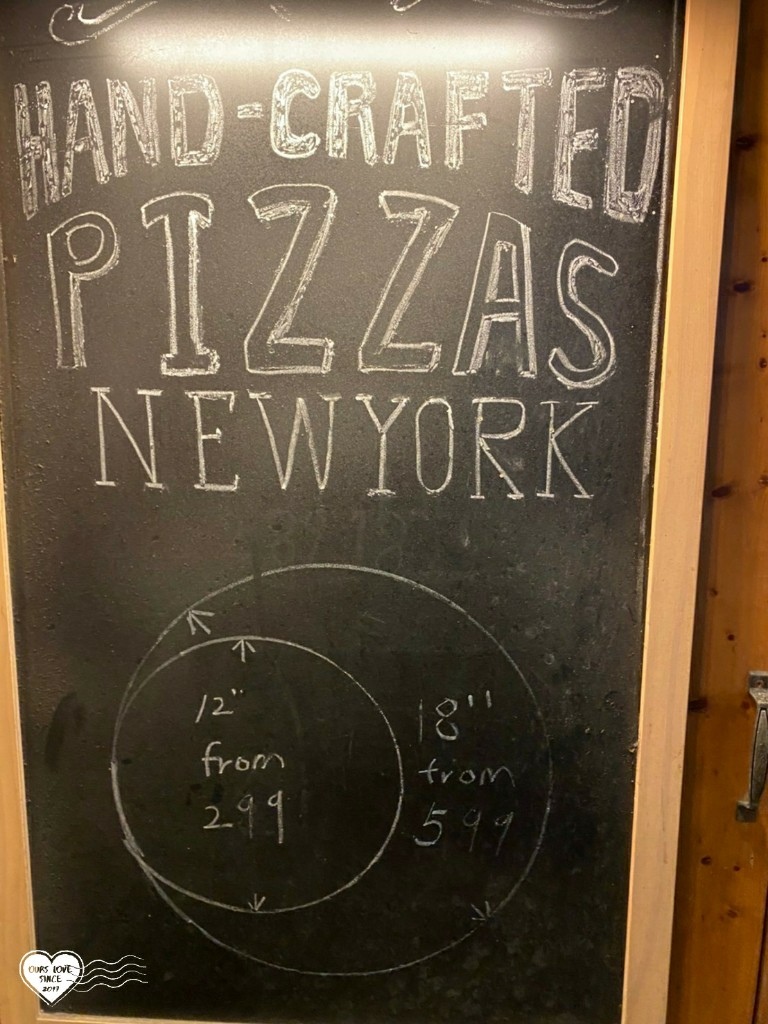 HAND-CRAFTED
PIZZAS
NEWYORK
12"
from
299
18"
from
599
OURS LOVE
SINCE
2017